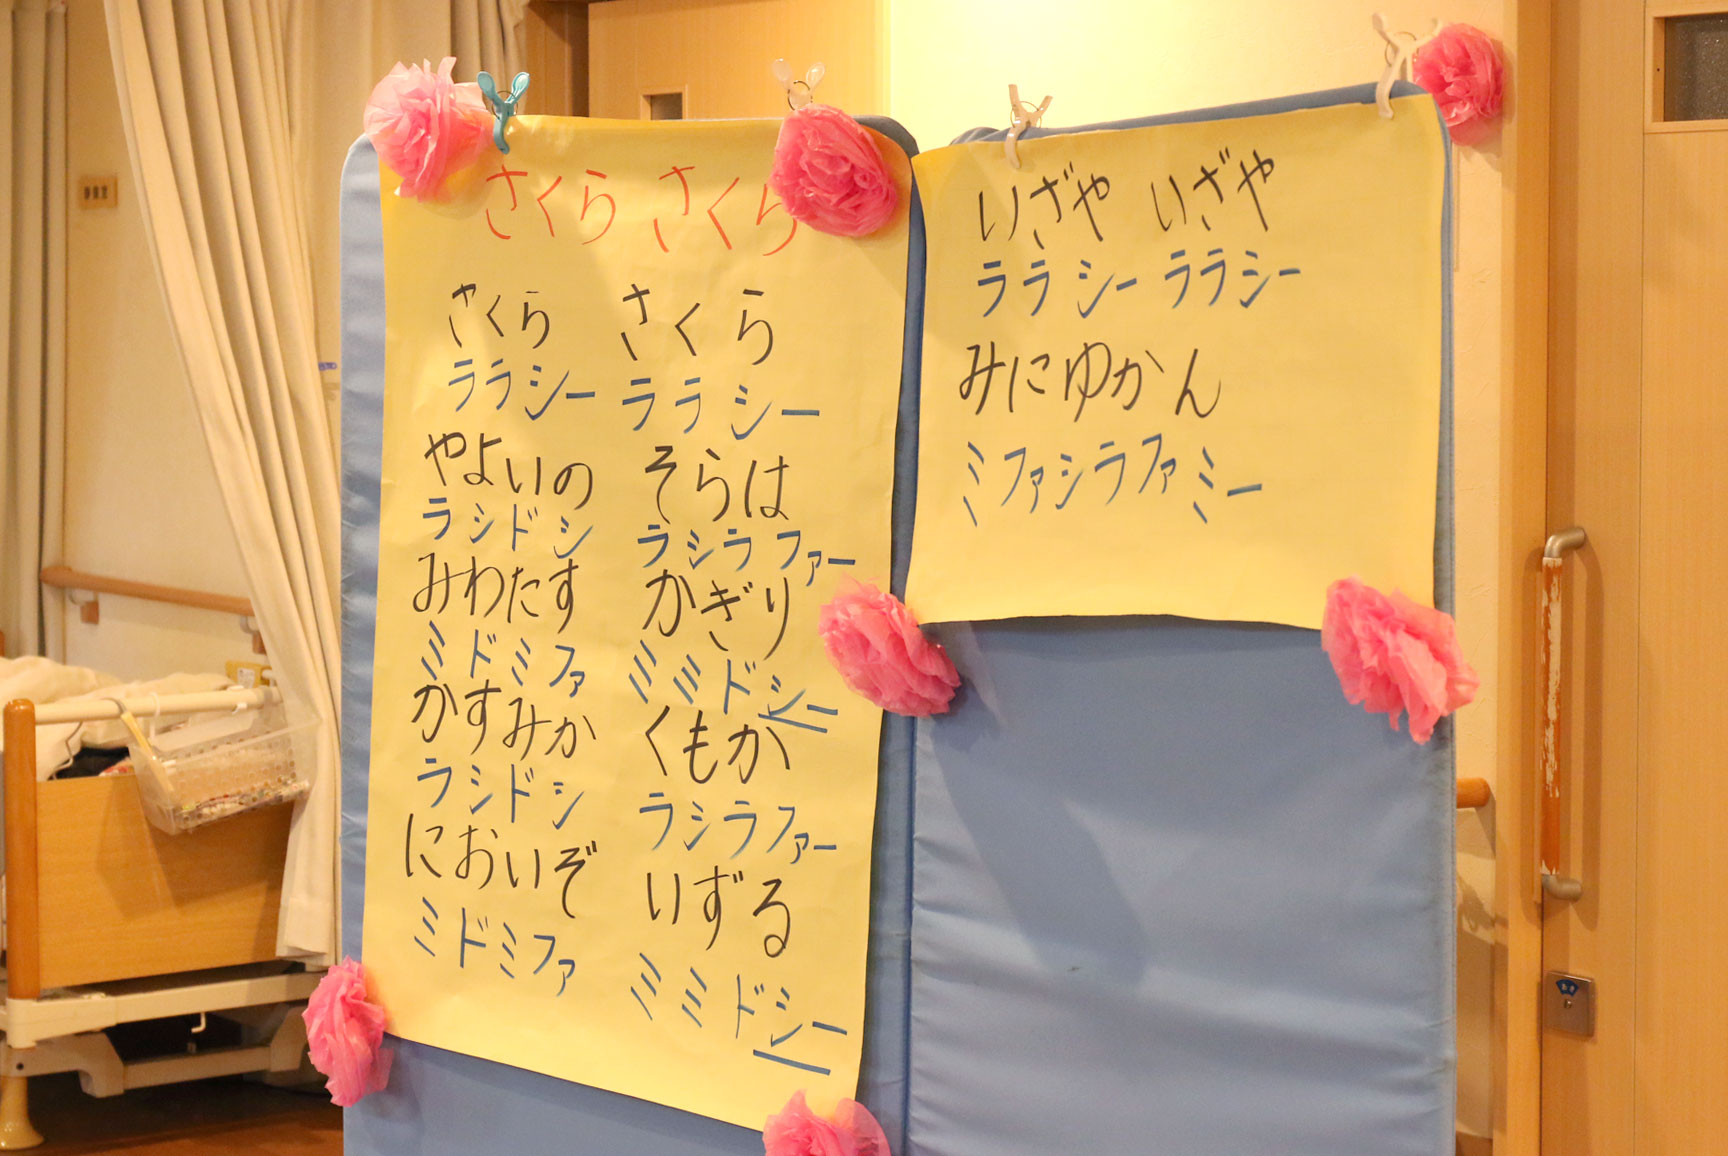 さくら さくら
さくら さくら
ララシー ララシー
やよいの そらは
ラシドシ ラシラファー
みわたす かぎり
ミドミファ ミミドシー
かすみか くもか
ラシドシ ラシラファー
においぞ いずる
ミドミファ ミミドシー
いざや いざや
ララシー ララシー
みにゆかん
ミファシラファミー